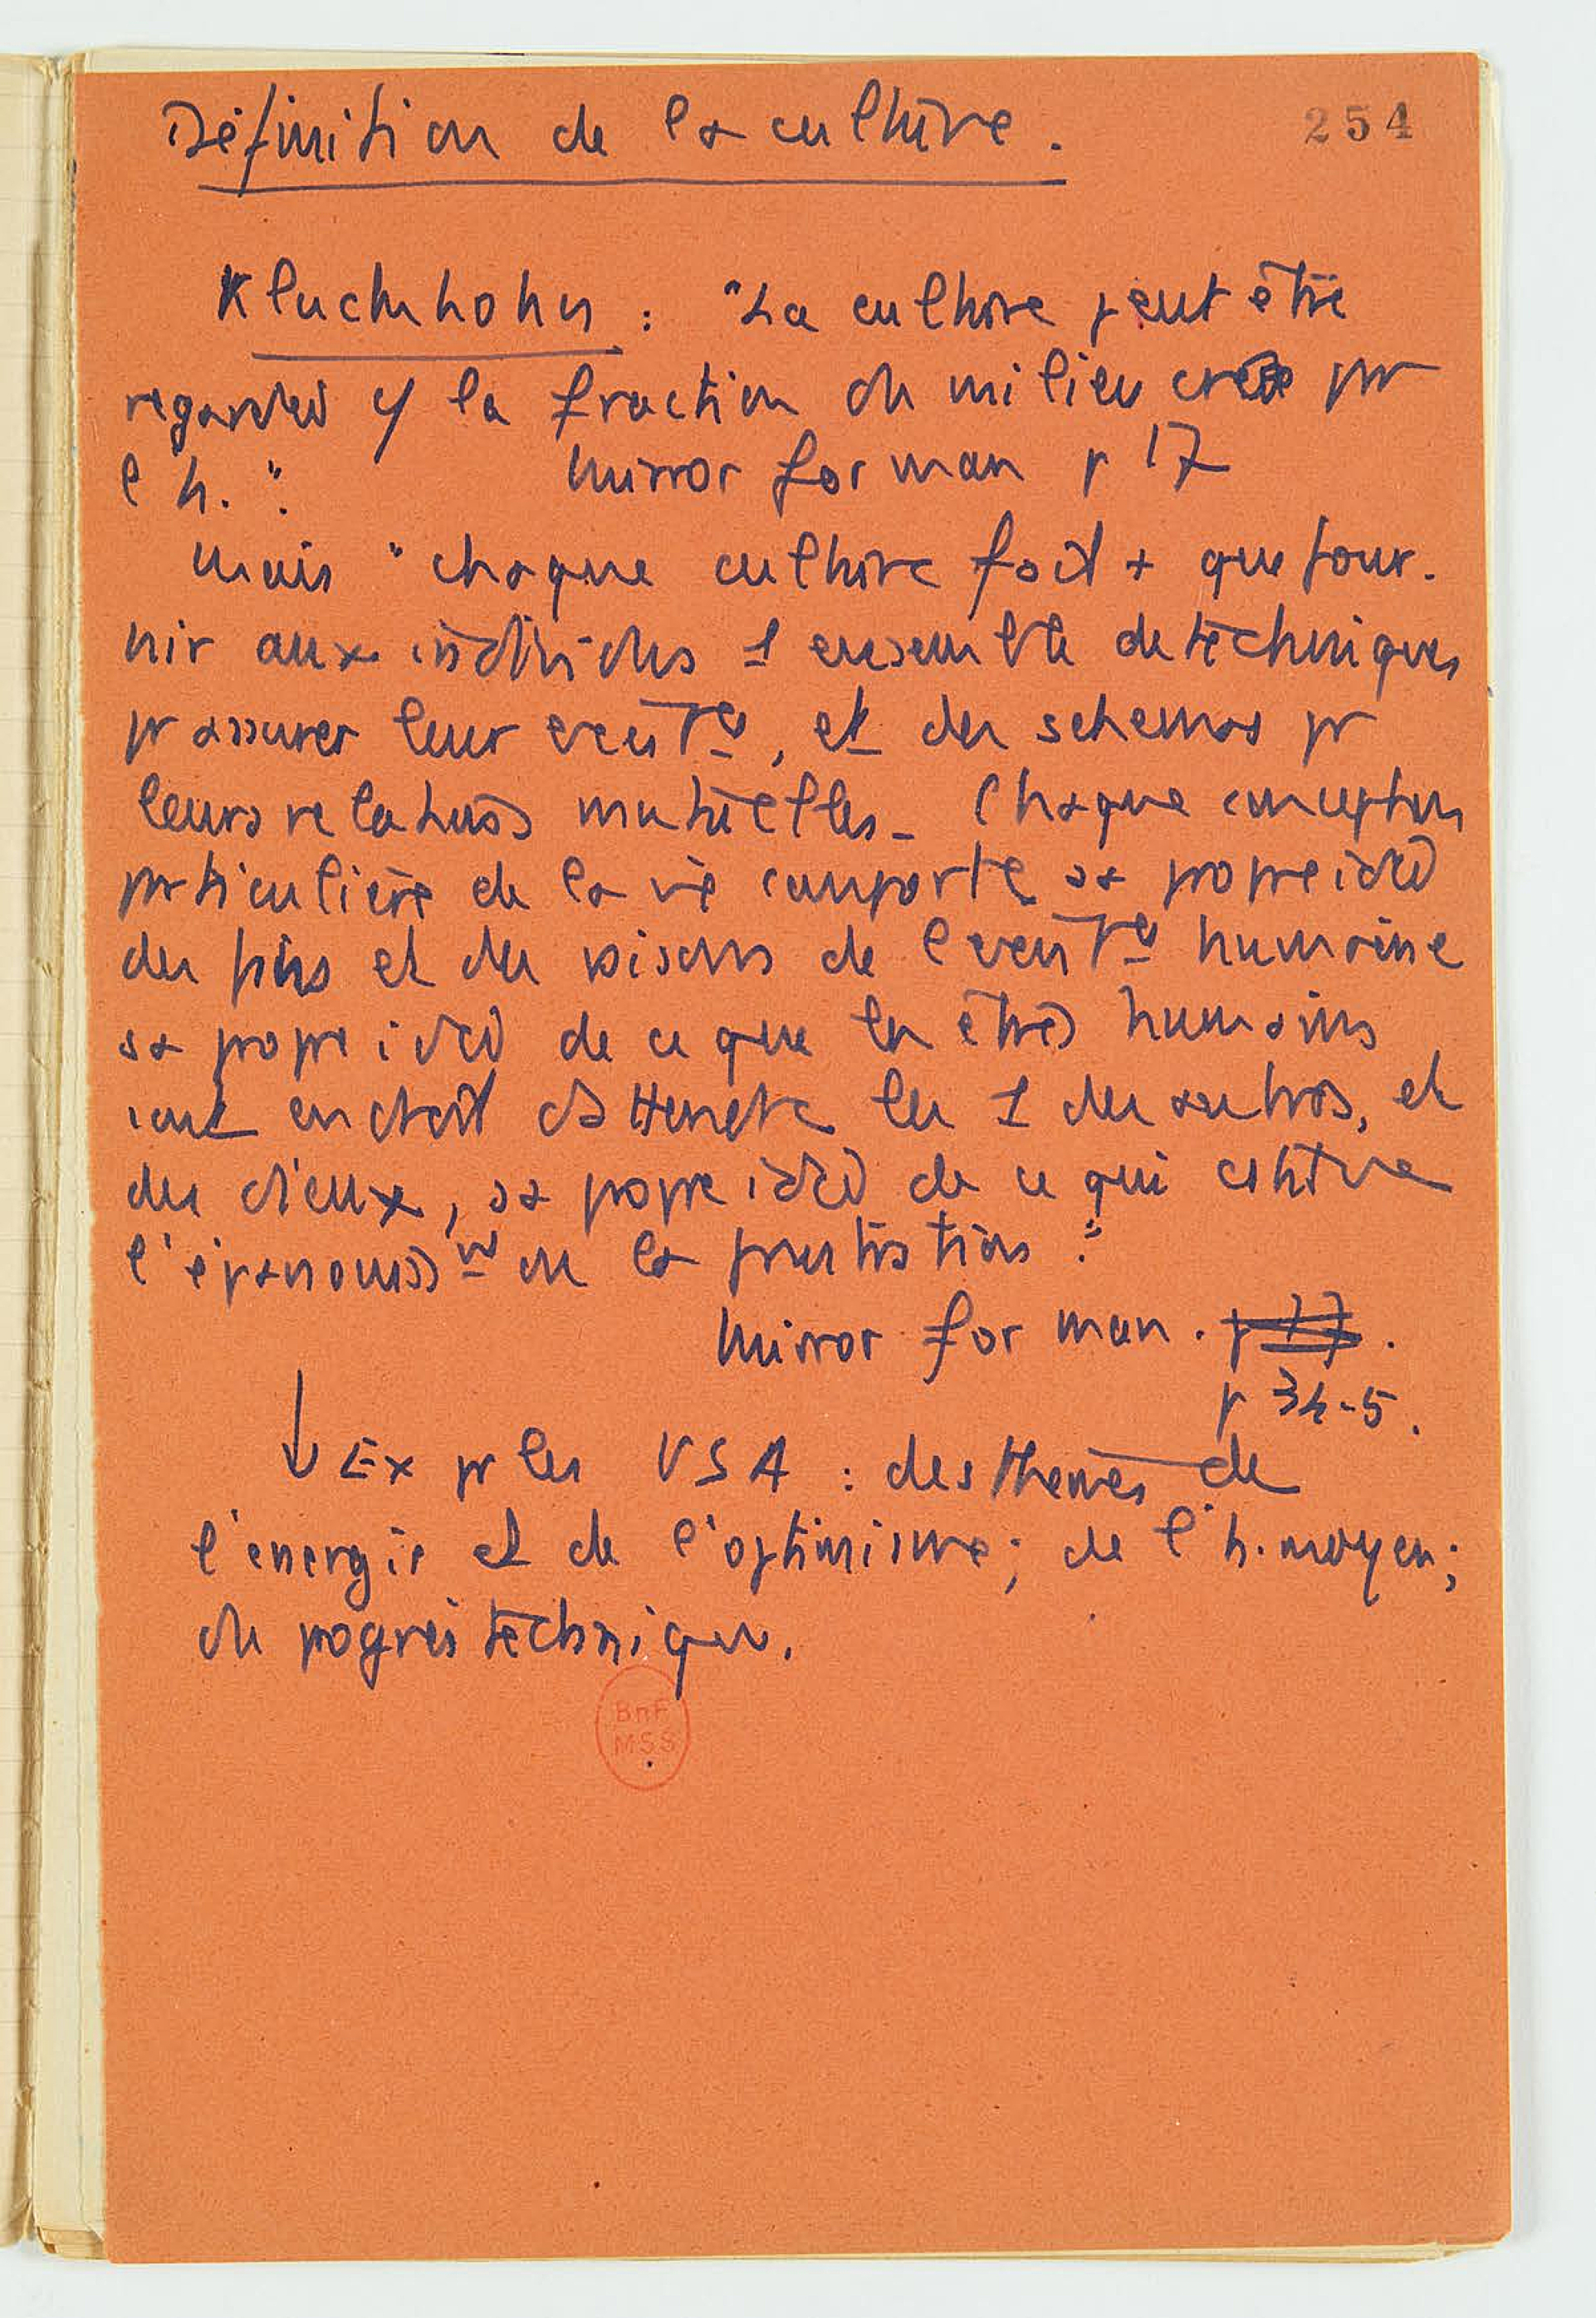 Définition de la culture.
254
Kluckhohn : "La culture peut être
regardée c/ la fraction du milieu créée pr
l'h.".   Mirror for man p 17
Mais "chaque culture fait + que four-
nir aux individus 1 ensemble de techniques
pr assurer leur existce, et des schémas pr
leurs relations mutuelles. Chaque conception
particulière de la vie comporte sa propre idée
des fins et des visées de l'existce humaine
sa propre idée de ce que les êtres humains
sont en droit d'attendre les 1 des autres, et
des dieux, sa propre idée de ce qui constitue
l'épanouisst ou la frustration".
Mirror for man. p 17.
p 34-5.
↓ Ex pr les USA : des thèmes de
l'énergie et de l'optimisme; de l'h. moyen;
du progrès technique.
BnF
MSS